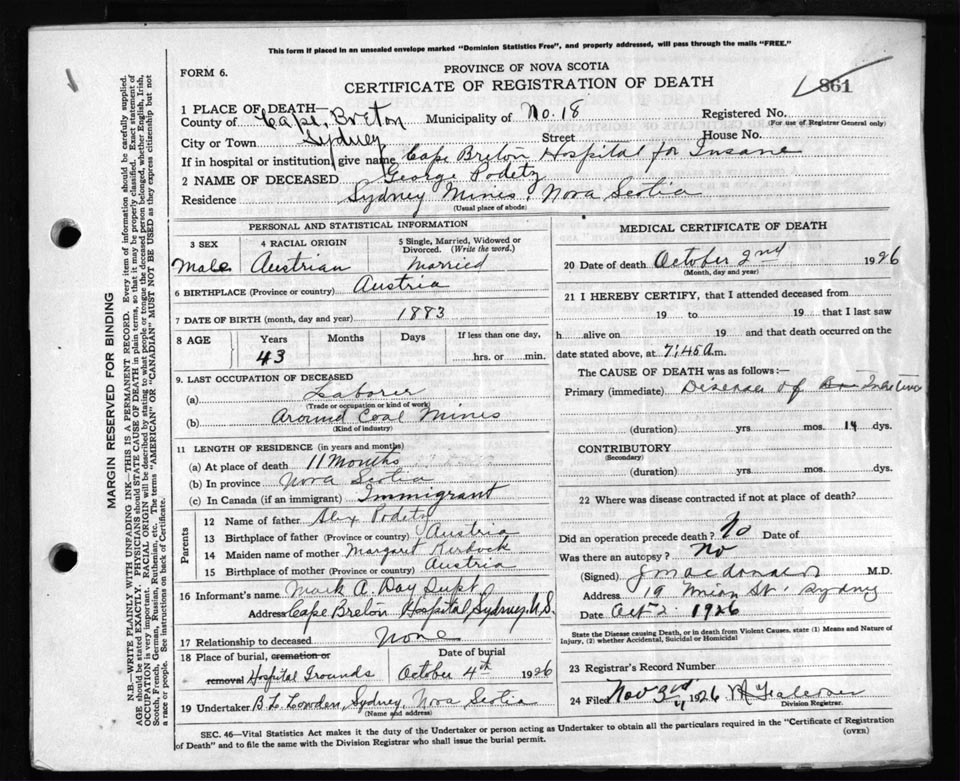 This form if placed in an unsealed envelope marked "Dominion Statistics Free", and properly addressed, will pass through the mails "FREE."
FORM 6.
PROVINCE OF NOVA SCOTIA
CERTIFICATE OF REGISTRATION OF DEATH
861
1 PLACE OF DEATH—
County of Cape Breton Municipality of No. 18 Registered No.
(For use of Registrar General only)
City or Town Sydney Street House No.
If in hospital or institution, give name Cape Breton Hospital for Insane
2 NAME OF DECEASED George Podetz
Residence Sydney Mines, Nova Scotia
(Usual place of abode)
PERSONAL AND STATISTICAL INFORMATION
3 SEX 4 RACIAL ORIGIN 5 Single, Married, Widowed or Divorced. (Write the word.)
Male Austrian Married
6 BIRTHPLACE (Province or country) Austria
7 DATE OF BIRTH (month, day and year) 1883
8 AGE Years Months Days If less than one day,
43 hrs. or min.
9. LAST OCCUPATION OF DECEASED
(a) Laborer
(Trade or occupation or kind of work)
(b) Around Coal Mines
(Kind of industry)
11 LENGTH OF RESIDENCE (in years and months)
(a) At place of death 11 Months
(b) In province Nova Scotia
(c) In Canada (if an immigrant) Immigrant
Parents
12 Name of father Alex Podetz
13 Birthplace of father (Province or country) Austria
14 Maiden name of mother Margaret
15 Birthplace of mother (Province or country) Austria
16 Informant's name Mark A. Day Supt
Address Cape Breton Hospital, Sydney, N.S.
17 Relationship to deceased None
18 Place of burial, cremation or removal Date of burial
Hospital Grounds October 4th 1926
19 Undertaker B. L. Lowden, Sydney, Nova Scotia
(Name and address)
MEDICAL CERTIFICATE OF DEATH
20 Date of death October 2nd 1926
(Month, day and year)
21 I HEREBY CERTIFY, that I attended deceased from
19 to 19 that I last saw
h alive on 19 and that death occurred on the
date stated above, at 7:45 A.m.
The CAUSE OF DEATH was as follows:—
Primary (immediate) Disease of
(duration) yrs. mos. 14 dys.
CONTRIBUTORY
(Secondary)
(duration) yrs. mos. dys.
22 Where was disease contracted if not at place of death?
Did an operation precede death? No Date of
Was there an autopsy? No
(Signed) J Macdonald M.D.
Address 19 Union St. Sydney
Date Oct 2. 1926
State the Disease causing Death, or in death from Violent Causes, state (1) Means and Nature of Injury, (2) whether Accidental, Suicidal or Homicidal
23 Registrar's Record Number
24 Filed Nov 3rd 1926
Division Registrar.
SEC. 46—Vital Statistics Act makes it the duty of the Undertaker or person acting as Undertaker to obtain all the particulars required in the "Certificate of Registration
of Death" and to file the same with the Division Registrar who shall issue the burial permit. (OVER)
MARGIN RESERVED FOR BINDING
N.B.—WRITE PLAINLY WITH UNFADING INK—THIS IS A PERMANENT RECORD. Every item of information should be carefully supplied.
AGE should be stated EXACTLY. PHYSICIANS should STATE CAUSE OF DEATH in plain terms, so that it may be properly classified. Exact statement of
OCCUPATION is very important. RACIAL ORIGIN will be described by stating to what people or tongue the deceased person belonged, whether English, Irish,
Scotch, French, German, Russian, Ruthenian, etc. The terms "AMERICAN" OR "CANADIAN" MUST NOT BE USED as they express citizenship but not
a race or people. See instructions on back of Certificate.